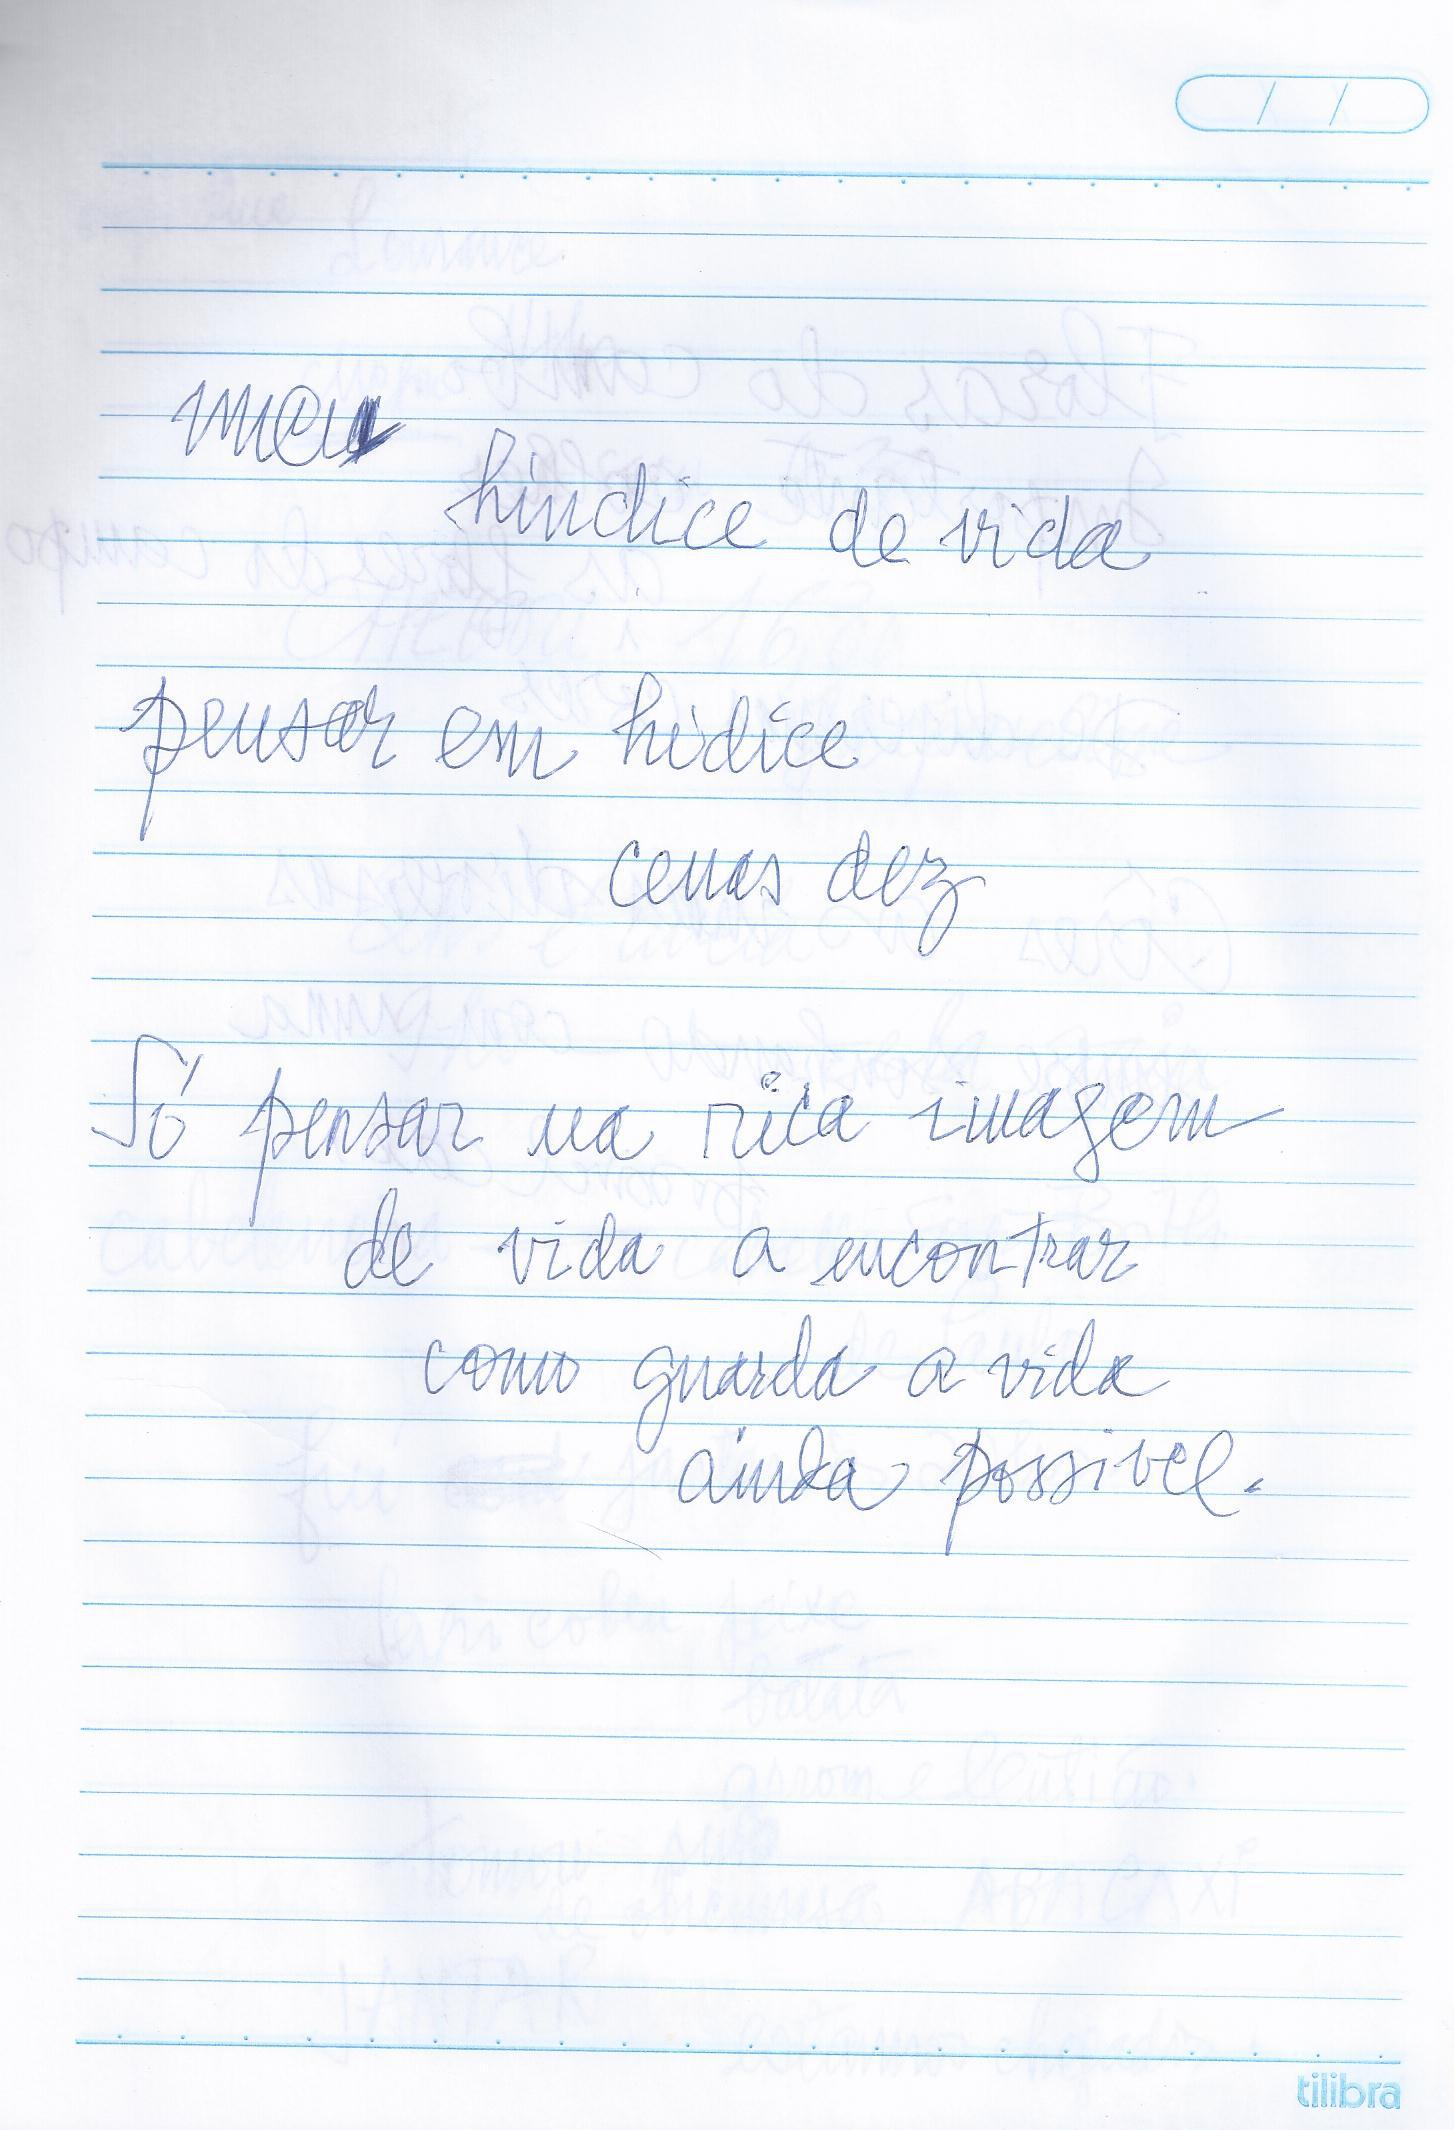 meu
hindice de vida
pensar em hidice
cenas dez
Só pensar na rica imagem
de vida a encontrar
como guarda a vida
ainda possivel.
tilibra